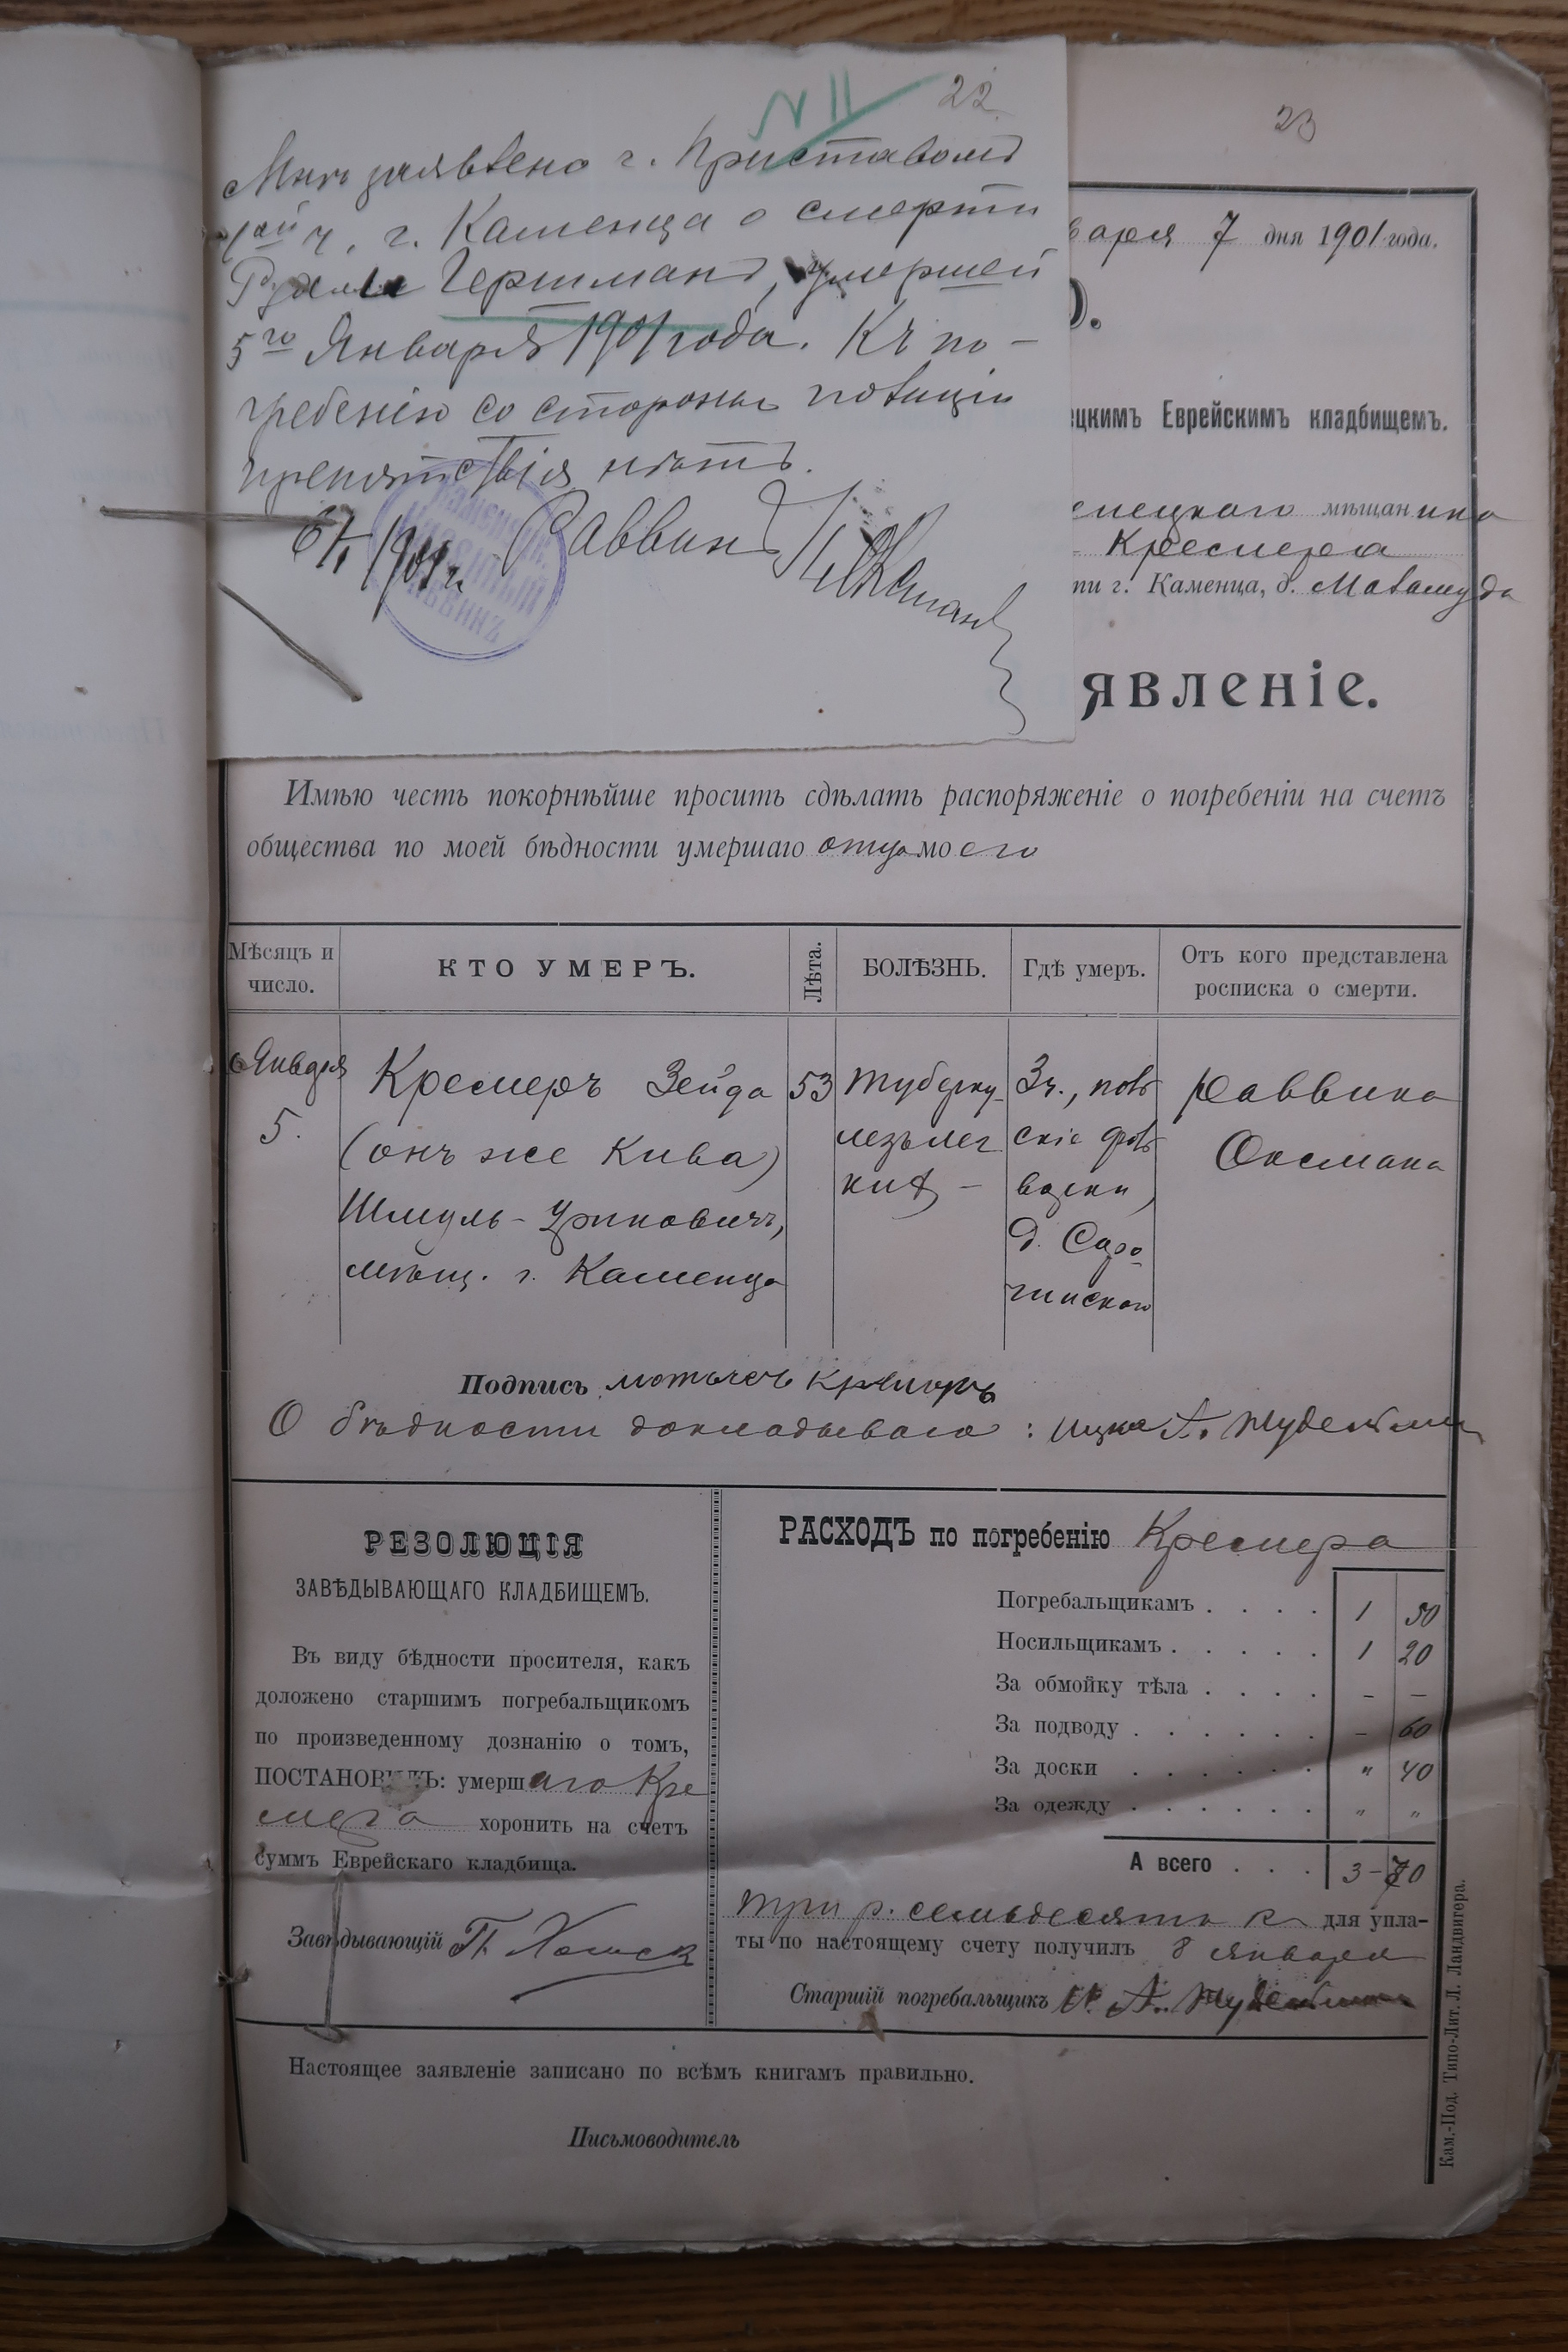 N 11
22
Мнѣ заявлено г. Приставомъ
1ой ч. г. Каменца о смерти
Рухли Гершманъ, умершей
5го Января 1901 года. Къ по-
гребенію со стороны полиціи
препятствія нѣтъ.
6/I 1901 г. Раввинъ
23
варя 7 дня 1901 года.
О.
ецкимъ Еврейскимъ кладбищемъ.
енецкаго мѣщанина
Кремера
ти г. Каменца, д.
явленіе.
Имѣю честь покорнѣйше просить сдѣлать распоряженіе о погребеніи на счетъ
общества по моей бѣдности умершаго отца моего
Мѣсяцъ и число.
КТО УМЕРЪ.
Лѣта.
БОЛѢЗНЬ.
Гдѣ умеръ.
Отъ кого представлена росписка о смерти.
Января
5.
Кремеръ Зейда
(онъ же Кива)
Шмуль-
мѣщ. г. Каменца
53
туберку
лезъ лег
кихъ –
3 ч., поль
скіе фоль
варки,
д. Саро
чинскаго
Раввина
Оксмана
Подпись
О бѣдности докладываю: Ицко А.
РЕЗОЛЮЦІЯ
ЗАВѢДЫВАЮЩАГО КЛАДБИЩЕМЪ.
Въ виду бѣдности просителя, какъ
доложено старшимъ погребальщикомъ
по произведенному дознанію о томъ,
ПОСТАНОВИЛЪ: умершаго Кре
мера хоронить на счетъ
суммъ Еврейскаго кладбища.
Завѣдывающій
РАСХОДЪ по погребенію Кремера
Погребальщикамъ . . . . 1 50
Носильщикамъ . . . . . 1 20
За обмойку тѣла . . . . – –
За подводу . . . . . . – 60
За доски . . . . . . " 40
За одежду . . . . . . " "
А всего . . . 3–70
три р. семьдесятъ к для упла-
ты по настоящему счету получилъ 8 января
Старшій погребальщикъ И. А.
Настоящее заявленіе записано по всѣмъ книгамъ правильно.
Письмоводитель
Кам.-Под. Типо-Лит. Л. Ландвигера.